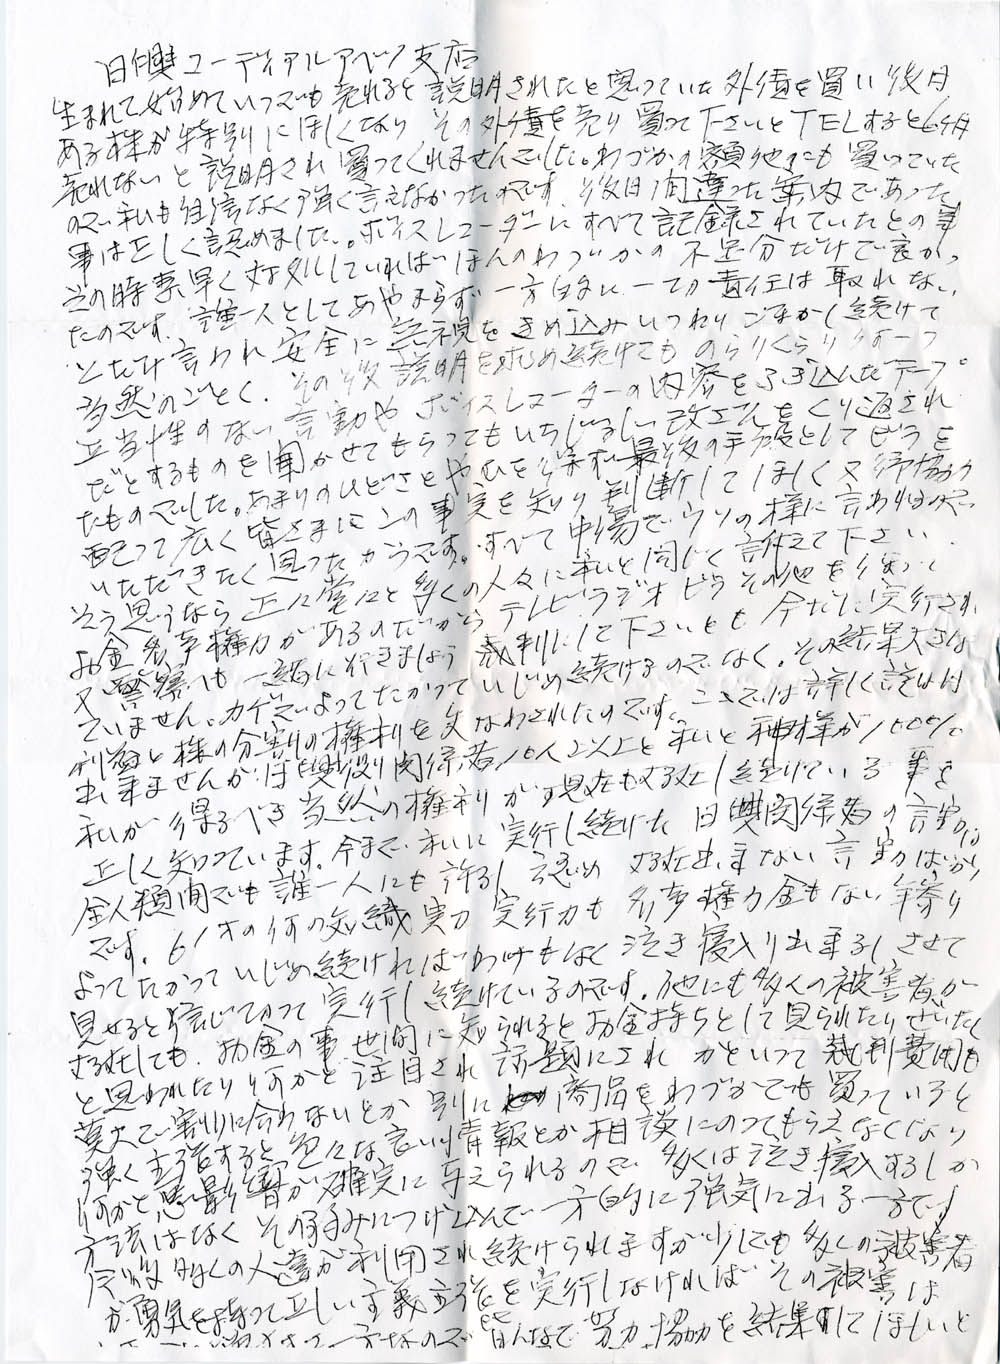 日興コーディアルアベノ支店
生まれて始めていつでも売れると説明されたと思っていた外債を買い後日
ある株が特別にほしくなり その外債を売り買って下さいとTELすると6ヶ月
売れないと説明され買ってくれませんでした。わづかの額他にも買っていた
ので私も自信なく強く言えなかったのです。後日間違った案内であった
事は正しく認めました。ボイスレコーダーにすべて記録されていたとの事
その時素早く対処していればほんのわづかの不足分だけで良かっ
たのです。誰一人としてあやまらず一方的に一切責任は取れない
とだけ言われ安全に無視をきめ込みいつわりごまかし続けて
当然のごとく。その後説明を求め続けてものらりくらり
正当性のない言動やボイスレコーダーの内容をふき込んだテープ
だとするものを聞かせてもらってもいちじるしい改ざんをくり返され
たものでした。あまりのひどさとやむを得ず最後の手段としてビラを
配って広く皆さまにこの事実を知り判断してほしく又御協力
いただきたく思ったからです。すべて中傷でウソの様に言われ
そう思うなら正々堂々と多くの人々に私と同じく訴えて下さい。
お金名誉権力があるのだからテレビラジオビラその他を使って
又警察へも一緒に行きましょう裁判にして下さいとも今だに実行され
ていません。カゲでよってたかっていじめ続けるのでなく。その結果大きな
利益と株の分割の権利を失なわされたのです。ここでは詳しく説明は
出来ませんが日興役関係者10人以上と私と神様が100%
私が得るべき当然の権利が現在も存在し続けている事を
正しく知っています。今まで私に実行し続けた日興関係者の言動は
全人類間でも誰一人にも許し認め存在出来ない言動ばかり
です。61才の何の知識実力実行力も名誉権力金もない年寄り
よってたかっていじめ続ければわけもなく泣き寝入り出来るしさせて
見せると信じてかって実行し続けているのです。他にも多くの被害者が
存在しても、お金の事世間に知られるとお金持ちとして見られたりぜいたく
と思われたり何かと注目され話題にされ かといって裁判費用も
莫大で割りに合わないとか 別に商品をわづかでも買っていると
強く主張すると色々な良い情報とか相談にのってもらえなくなり
何かと悪影響が確実に与えられるので 多くは泣き寝入するしか
方法はなくその弱みにつけ込んで一方的に強気に出る一方です
今後多くの人達が利用され続けられますが少しでも多くの被害者
が勇気を持って正しい主義主張を実行しなければその被害は
一方なので皆んなで努力協力を結集してほしいと